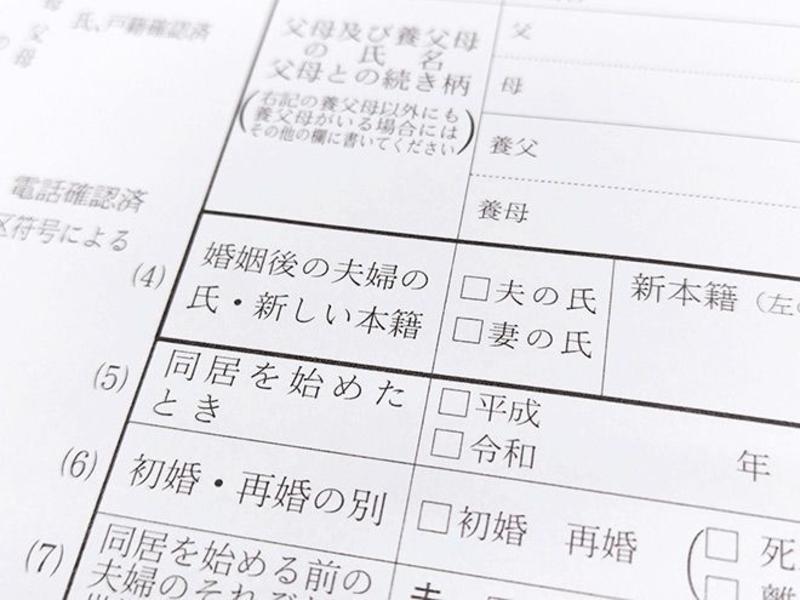 氏、戸籍確認済
父母
の
電話確認済
符号による
父母及び養父母
の氏名
父母との続き柄
(右記の養父母以外にも
養父母がいる場合には
その他の欄に書いてください)
父
母
養父
養母
(4)
婚姻後の夫婦の
氏・新しい本籍
□夫の氏
□妻の氏
新本籍(左の
(5)
同居を始めた
とき
□平成
□令和
年
(6)
初婚・再婚の別
□初婚 再婚
(□死
□離
(7)
同居を始める前の
夫婦のそれぞれ
夫